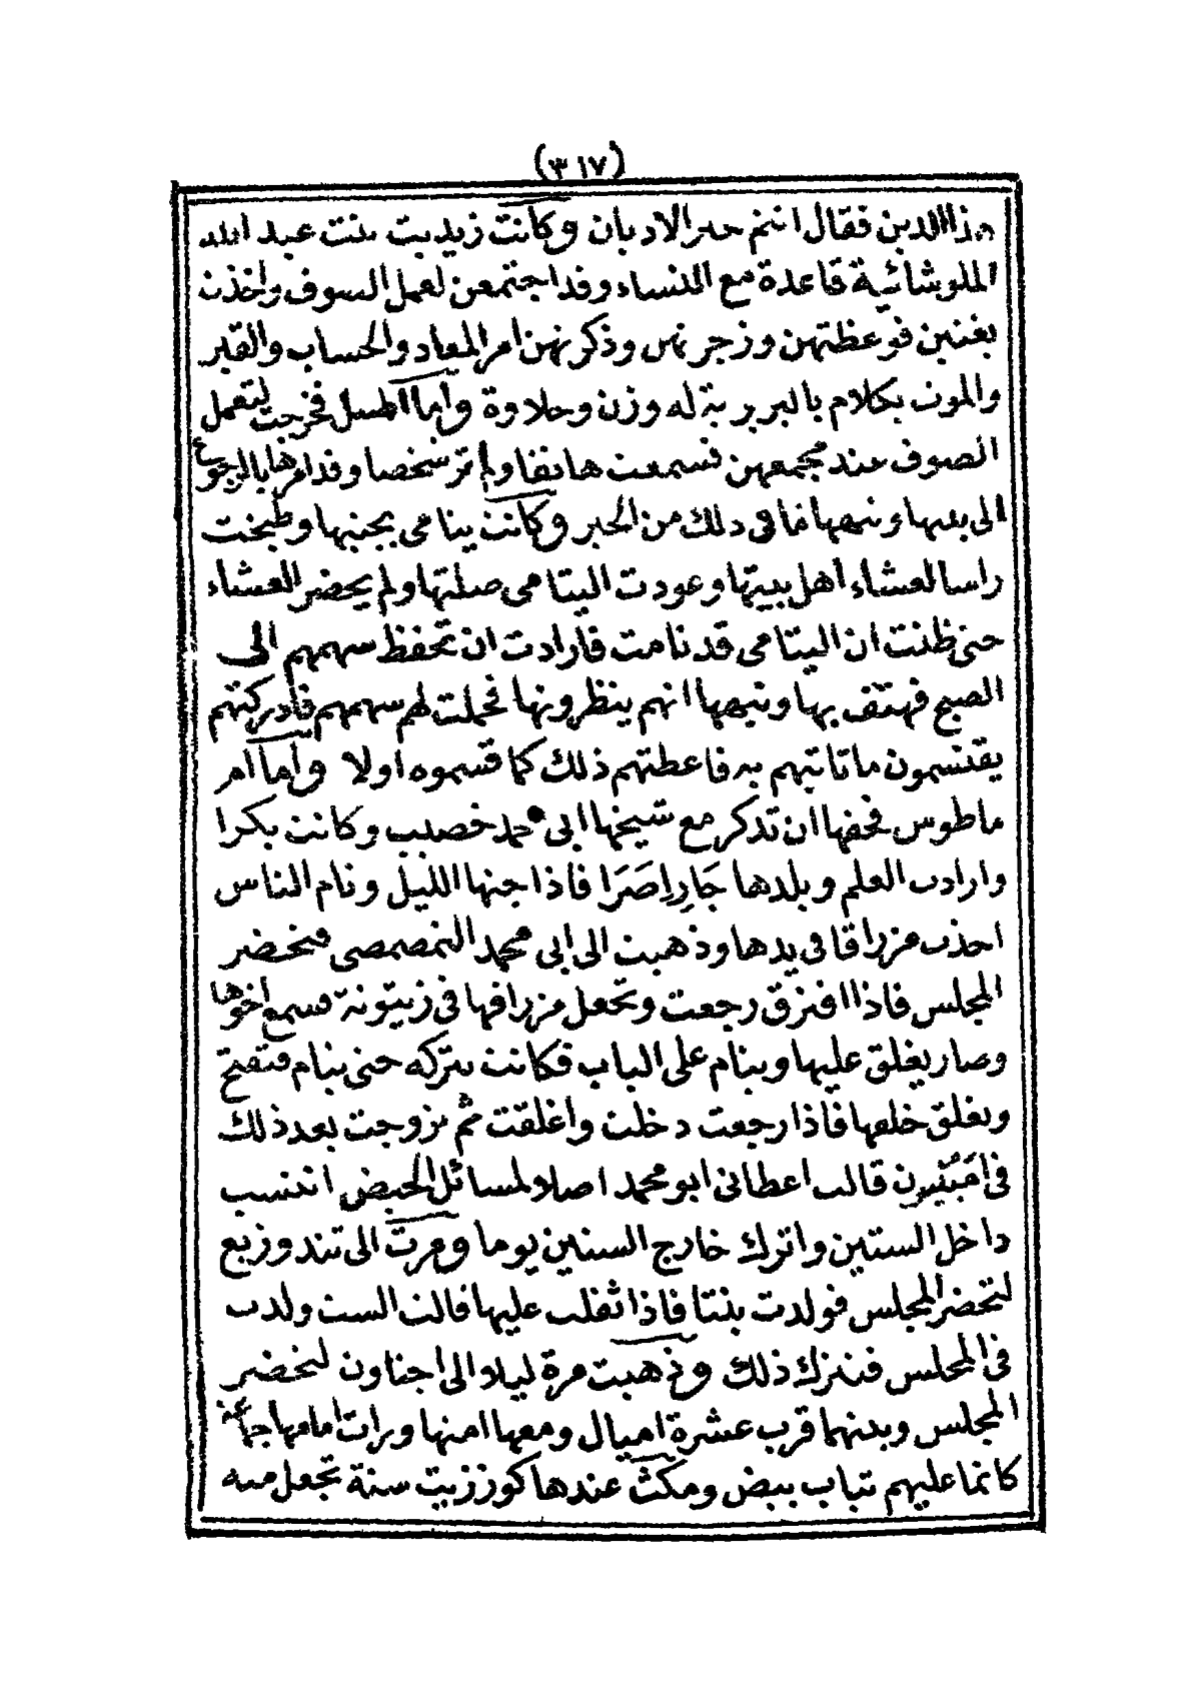 (٣١٧)
هذا الدين فقال انتم خير الاديان وكانت زيديت بنت عبد الله
الملوشائية قاعدة مع النساء وقد اجتمعن لعمل الصوف واخذن
يغنين فوعظتهن وزجرتهن وذكرتهن امر المعاد والحساب والقبر
والموت بكلام بالبربرية له وزن وحلاوة واما الهسل فخرجت لتعمل
الصوف عند مجمعهن فسمعت هاتفا ولم تر شخصا وقد امرها بالرجوع
الى بيتها ونبهها مما فى ذلك من الخير وكانت يتامى بجنبها وطبخت
راسا لعشاء اهل بيتها وعودت اليتامى صلتها ولم يحضر العشاء
حتى ظنت ان اليتامى قد نامت فارادت ان تحفظ سهمهم الى
الصبح فهتف بها ونبهها انهم ينظرونها فحملت لهم سهمهم فادركتهم
يقتسمون ما تاتيهم به فاعطتهم ذلك كما قسموه اولا واما ام
ماطوس فحقها ان تذكر مع شيخها ابى محمد خصيب وكانت بكرا
وارادت العلم وبلدها جَارِاِصَرَا فاذا جنها الليل ونام الناس
اخذت مزراقا فى يدها وذهبت الى ابى محمد التمصمصى فتحضر
المجلس فاذا افترق رجعت وتجعل مزراقها فى زيتونة فسمع اخوها
وصار يغلق عليها وينام على الباب فكانت تتركه حتى ينام فتفتح
وتغلق خلفها فاذا رجعت دخلت واغلقت ثم تزوجت بعد ذلك
فى اَمْسِين قالت اعطانى ابو محمد اصلا لمسائل الحيض انتسب
داخل الستين واترك خارج الستين يوما ومرت الى تندوزيغ
لتحضر المجلس فولدت بنتا فاذا ثقلت عليها قالت الست ولدت
فى المجلس فتترك ذلك وذهبت مرة ليلا الى اجناون لتحضر
المجلس وبينهما قرب عشرة اميال ومعها امتها ورات امامها جماعة
كانما عليهم ثياب بيض ومكث عندها كوز زيت سنة تجعل منه